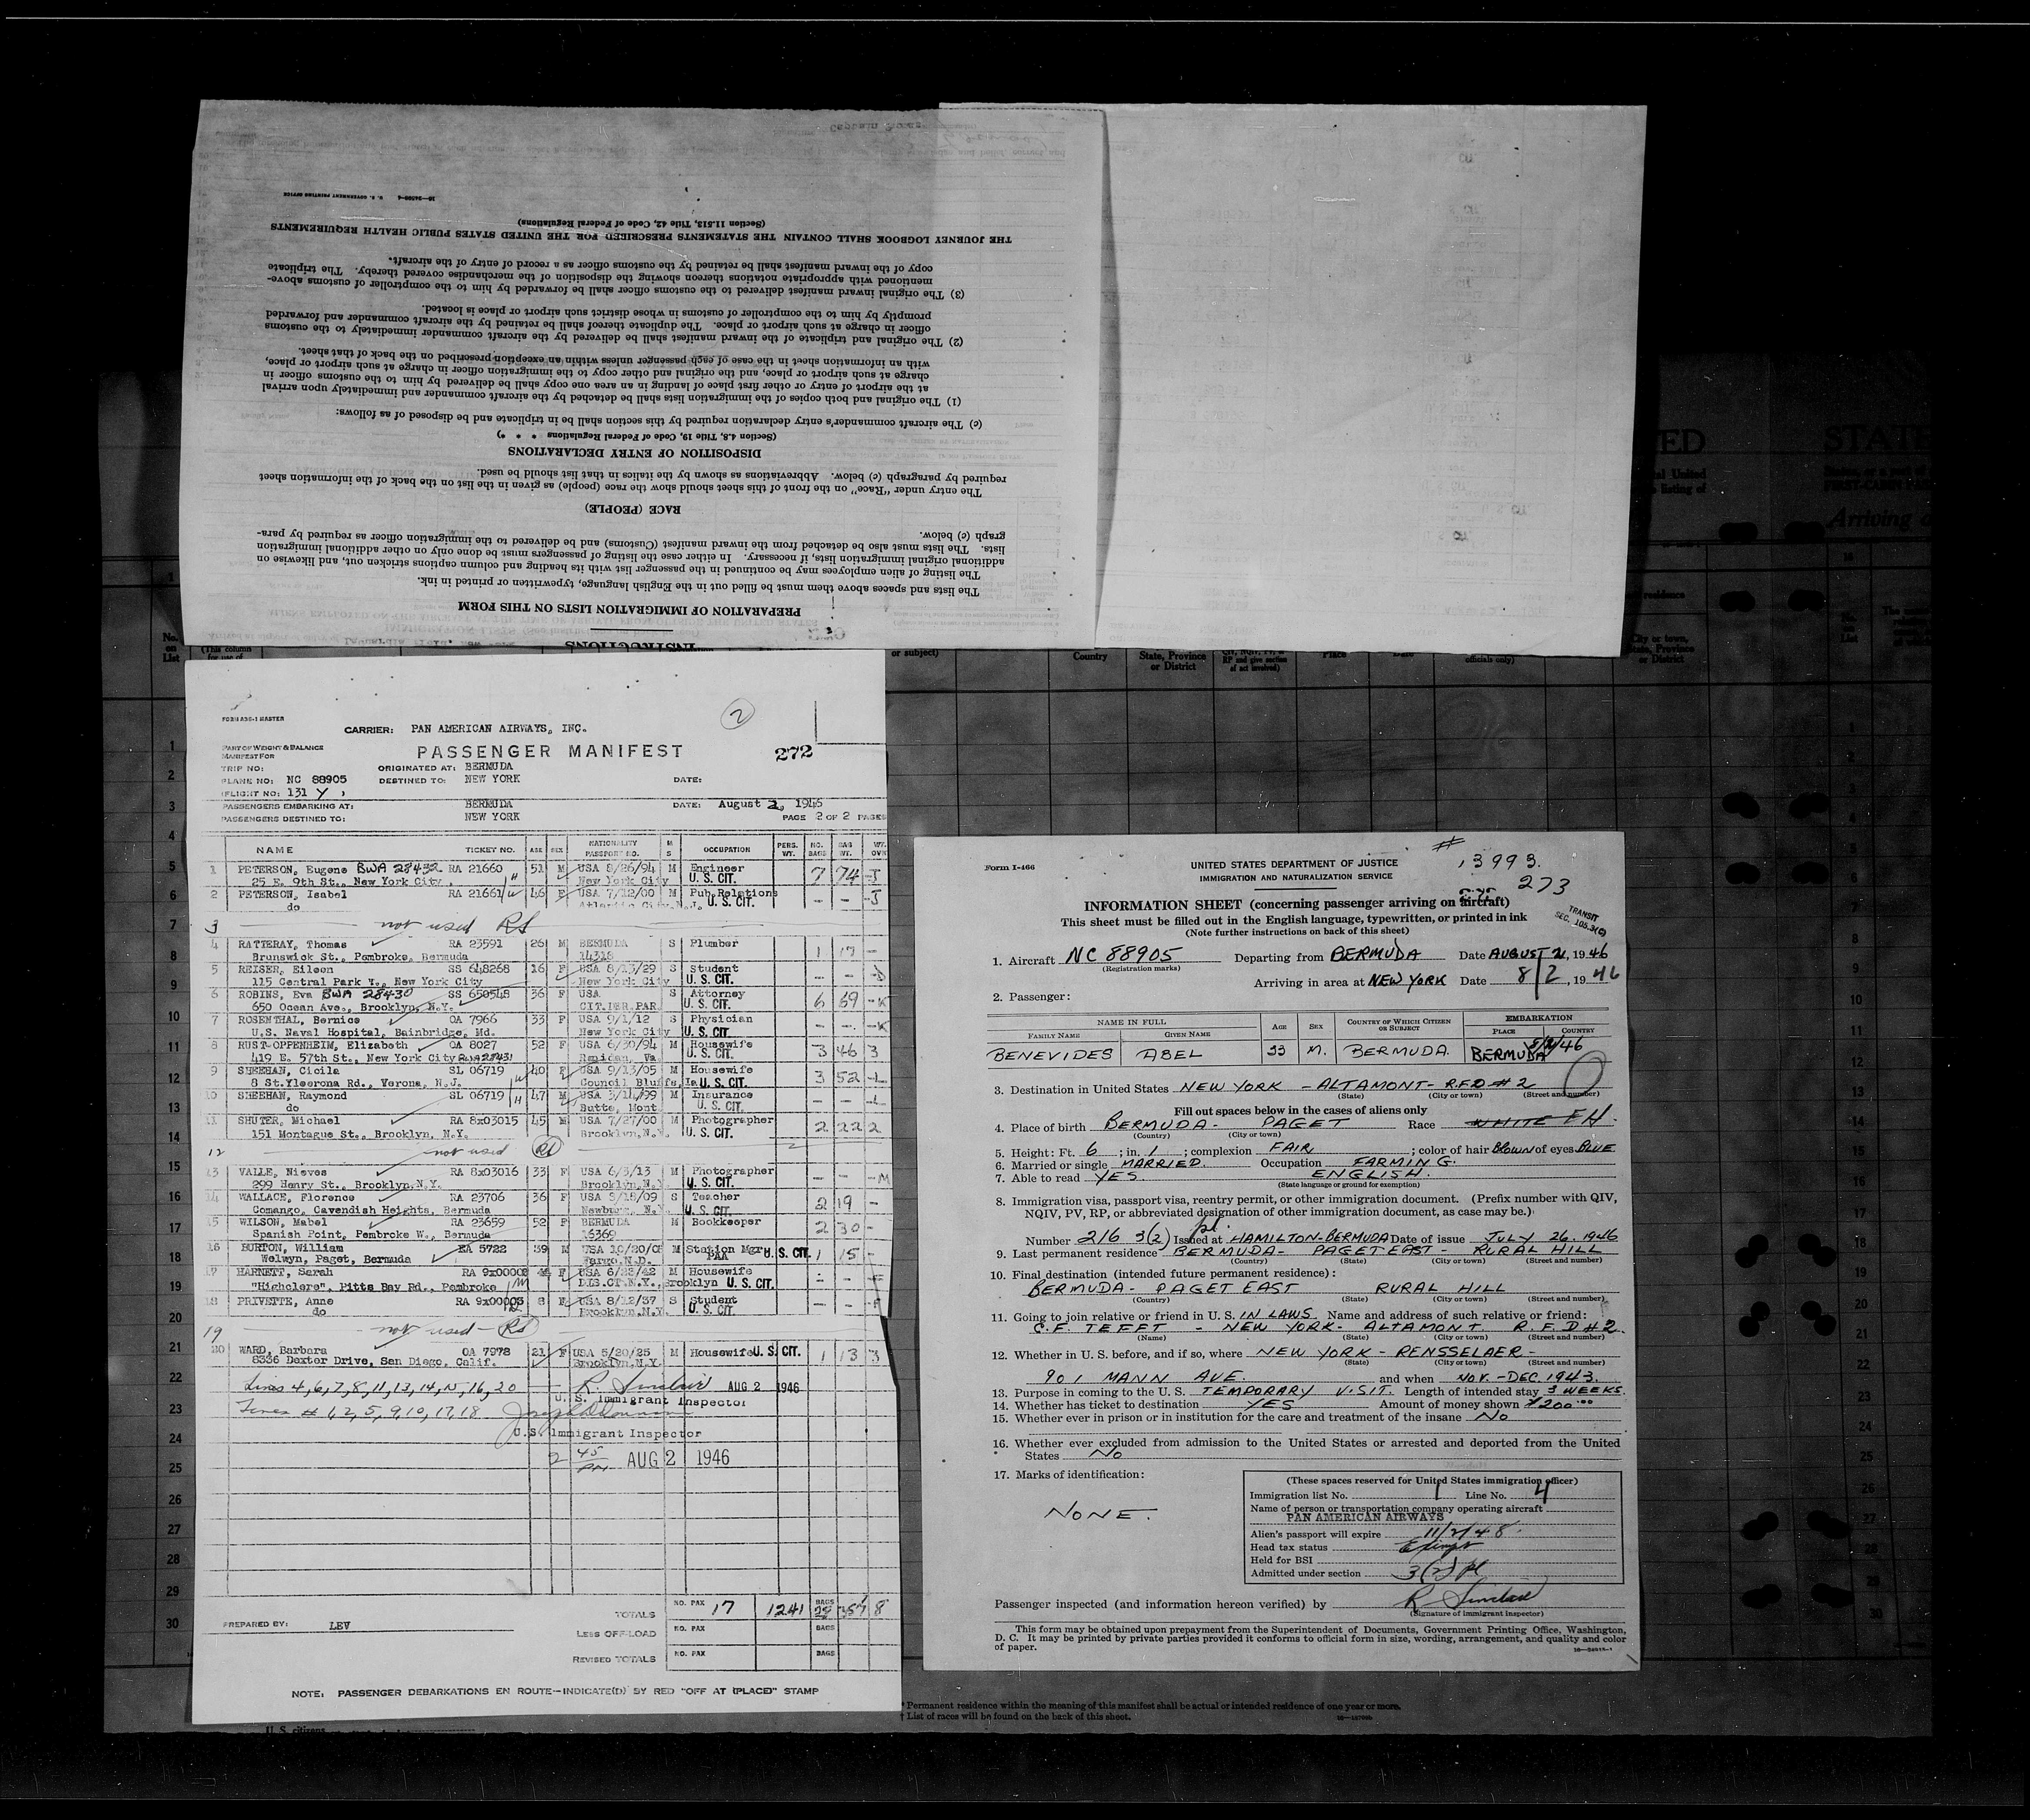 THE JOURNEY LOGBOOK SHALL CONTAIN THE STATEMENTS PRESCRIBED FOR THE UNITED STATES PUBLIC HEALTH REQUIREMENTS
(Section 11.513, Title 42, Code of Federal Regulations)
INSTRUCTIONS
PREPARATION OF IMMIGRATION LISTS ON THIS FORM
The lists and spaces above them must be filled out in the English language, typewritten or printed in ink.
The listing of alien employees may be continued in the passenger list with its heading and column captions stricken out, and likewise on
additional original immigration lists, if necessary. In either case the listing of passengers must be done only on other additional immigration
lists. The lists must also be detached from the inward manifest (Customs) and be delivered to the immigration officer as required by para-
graph (c) below.
RACE (PEOPLE)
The entry under "Race" on the front of this sheet should show the race (people) as given in the list on the back of the information sheet
required by paragraph (c) below. Abbreviations as shown by the italics in that list should be used.
DISPOSITION OF ENTRY DECLARATIONS
(Section 4.8, Title 19, Code of Federal Regulations * * *)
(c) The aircraft commander's entry declaration required by this section shall be in triplicate and be disposed of as follows:
(1) The original and both copies of the immigration lists shall be detached by the aircraft commander and immediately upon arrival
at the airport of entry or other first place of landing in an area one copy shall be delivered by him to the customs officer in
charge at such airport or place, and the original and other copy to the immigration officer in charge at such airport or place,
with an information sheet in the case of each passenger unless within an exception prescribed on the back of that sheet.
(2) The original and triplicate of the inward manifest shall be delivered by the aircraft commander immediately to the customs
officer in charge at such airport or place. The duplicate thereof shall be retained by the aircraft commander and forwarded
promptly by him to the comptroller of customs in whose district such airport or place is located.
(3) The original inward manifest delivered to the customs officer shall be forwarded by him to the comptroller of customs above-
mentioned with appropriate notations thereon showing the disposition of the merchandise covered thereby. The triplicate
copy of the inward manifest shall be retained by the customs officer as a record of entry of the aircraft.
2
CARRIER: PAN AMERICAN AIRWAYS, INC.
PASSENGER MANIFEST 272
PART OF WEIGHT & BALANCE
MANIFEST FOR
TRIP NO: ORIGINATED AT: BERMUDA
PLANE NO: NC 88905 DESTINED TO: NEW YORK DATE:
FLIGHT NO: 131 Y
PASSENGERS EMBARKING AT: BERMUDA DATE: August 2, 1946
PASSENGERS DESTINED TO: NEW YORK PAGE 2 OF 2 PAGES
NAME TICKET NO. AGE SEX NATIONALITY PASSPORT NO. M S OCCUPATION PERS. WT. NO. BAGS BAG WT. WT. OVR
1 PETERSON, Eugene BWA 28432 RA 21660 51 M USA 8/26/94 M Engineer 7 74 J
25 E. 9th St., New York City H New York City U. S. CIT.
2 PETERSON, Isabel RA 21661 W 46 F USA 7/12/00 M Pub.Relations - - J
do Atlantic City, N.J. U. S. CIT.
3 not used RS
4 RATTERAY, Thomas RA 23591 26 M BERMUDA S Plumber 1 17 -
Brunswick St., Pembroke, Bermuda 14318
5 REISER, Eileen SS 648268 16 F USA 8/13/29 S Student - -
115 Central Park Y., New York City New York City U. S. CIT.
6 ROBINS, Eva BWA 28430 SS 650548 36 F USA S Attorney 6 69 K
650 Ocean Ave., Brooklyn, N.Y. CIT.DER.PAR. U. S. CIT.
7 ROSENTHAL, Bernice OA 7966 33 F USA 9/1/12 S Physician - - K
U.S. Naval Hospital, Bainbridge, Md. New York City U. S. CIT.
8 RUST-OPPENHEIM, Elizabeth OA 8027 52 F USA 6/30/94 M Housewife 3 46 3
419 E. 57th St., New York City Remidan, Va. U. S. CIT.
9 SHEEHAN, Cicila SL 06719 W 40 F USA 9/13/05 M Housewife 3 52 L
8 St.Yleerona Rd., Verona, N.J. Council Bluffs, Ia U. S. CIT.
10 SHEEHAN, Raymond SL 06719 H 47 M USA 3/14/99 M Insurance - - L
do Butte, Mont U. S. CIT.
11 SHUTER, Michael RA 8x03015 45 M USA 7/27/00 M Photographer 2 22 2
151 Montague St., Brooklyn, N.Y. Brooklyn, N.Y. U. S. CIT.
12 not used RS
13 VALLE, Nieves RA 8x03016 33 F USA 6/3/13 M Photographer - - M
299 Henry St., Brooklyn, N.Y. Brooklyn, N.Y. U. S. CIT.
14 WALLACE, Florence RA 23706 36 F USA 8/18/09 S Teacher 2 19 -
Comango, Cavendish Heights, Bermuda Newburg, N.Y. U. S. CIT.
15 WILSON, Mabel RA 23659 52 F BERMUDA M Bookkeeper 2 30 -
Spanish Point, Pembroke W., Bermuda 16369
16 BURTON, William EA 5722 39 M USA 10/20/06 M Station Mgr. U. S. CIT. 1 15 -
Welwyn, Paget, Bermuda Fargo, N.D. PAA
17 HARNETT, Sarah RA 9x00002 F USA 6/23/42 M Housewife - -
"Highclere", Pitts Bay Rd., Pembroke M DIS.CT.N.Y., Brooklyn U. S. CIT.
18 PRIVETTE, Anne RA 9x00003 8 F USA 8/12/37 S Student - -
do Brooklyn, N.Y. U. S. CIT.
19 not used - RS
20 WARD, Barbara OA 7978 21 F USA 5/20/25 M Housewife U. S. CIT. 1 13 3
8336 Dexter Drive, San Diego, Calif. Brooklyn, N.Y.
Lines 4, 6, 7, 8, 11, 13, 14, 15, 16, 20 R. Sinclair AUG 2 1946
U. S. Immigrant Inspector
Lines # 1, 2, 5, 9, 10, 17, 18
U. S. Immigrant Inspector
2 45 PM AUG 2 1946
TOTALS NO. PAX 17 1241 BAGS 28 357 8
PREPARED BY: LEV
LESS OFF-LOAD NO. PAX BAGS
REVISED TOTALS NO. PAX BAGS
NOTE: PASSENGER DEBARKATIONS EN ROUTE—INDICATE(D) BY RED "OFF AT (PLACE)" STAMP
Form I-466
UNITED STATES DEPARTMENT OF JUSTICE
IMMIGRATION AND NATURALIZATION SERVICE
# 13993
273
INFORMATION SHEET (concerning passenger arriving on aircraft)
This sheet must be filled out in the English language, typewritten, or printed in ink
(Note further instructions on back of this sheet)
TRANSIT
SEC. 105.3(C)
1. Aircraft NC 88905 Departing from BERMUDA Date AUGUST 2, 1946
(Registration marks)
Arriving in area at NEW YORK Date 8/2, 1946
2. Passenger:
NAME IN FULL AGE SEX COUNTRY OF WHICH CITIZEN OR SUBJECT EMBARKATION
FAMILY NAME GIVEN NAME PLACE COUNTRY
BENEVIDES ABEL 33 M. BERMUDA. BERMUDA 8/2/46
3. Destination in United States NEW YORK - ALTAMONT - R.F.D # 2
(State) (City or town) (Street and number)
Fill out spaces below in the cases of aliens only
4. Place of birth BERMUDA - PAGET Race WHITE EH.
(Country) (City or town)
5. Height: Ft. 6; in. 1; complexion FAIR; color of hair BROWN of eyes BLUE
6. Married or single MARRIED. Occupation FARMING.
7. Able to read YES. ENGLISH.
(State language or ground for exemption)
8. Immigration visa, passport visa, reentry permit, or other immigration document. (Prefix number with QIV,
NQIV, PV, RP, or abbreviated designation of other immigration document, as case may be.)
Number 216 3(2) pl. Issued at HAMILTON-BERMUDA Date of issue JULY 26. 1946
9. Last permanent residence BERMUDA - PAGET EAST - RURAL HILL
(Country) (State) (City or town) (Street and number)
10. Final destination (intended future permanent residence):
BERMUDA - PAGET EAST RURAL HILL
(Country) (State) (City or town) (Street and number)
11. Going to join relative or friend in U. S. IN LAWS. Name and address of such relative or friend:
C.F. TEFFT - NEW YORK - ALTAMONT. R.F.D # 2.
(Name) (State) (City or town) (Street and number)
12. Whether in U. S. before, and if so, where NEW YORK - RENSSELAER -
(State) (City or town) (Street and number)
901 MANN AVE. and when NOV. - DEC. 1943.
13. Purpose in coming to the U. S. TEMPORARY VISIT. Length of intended stay 3 WEEKS.
14. Whether has ticket to destination YES Amount of money shown $200.00
15. Whether ever in prison or in institution for the care and treatment of the insane No
16. Whether ever excluded from admission to the United States or arrested and deported from the United
States No
17. Marks of identification:
NONE.
(These spaces reserved for United States immigration officer)
Immigration list No. 1 Line No. 4
Name of person or transportation company operating aircraft
PAN AMERICAN AIRWAYS
Alien's passport will expire 11/2/48.
Head tax status Exempt
Held for BSI
Admitted under section 3(2) pl
Passenger inspected (and information hereon verified) by R Sinclair
(Signature of immigrant inspector)
This form may be obtained upon prepayment from the Superintendent of Documents, Government Printing Office, Washington,
D. C. It may be printed by private parties provided it conforms to official form in size, wording, arrangement, and quality and color
of paper.
* Permanent residence within the meaning of this manifest shall be actual or intended residence of one year or more.
† List of races will be found on the back of this sheet.